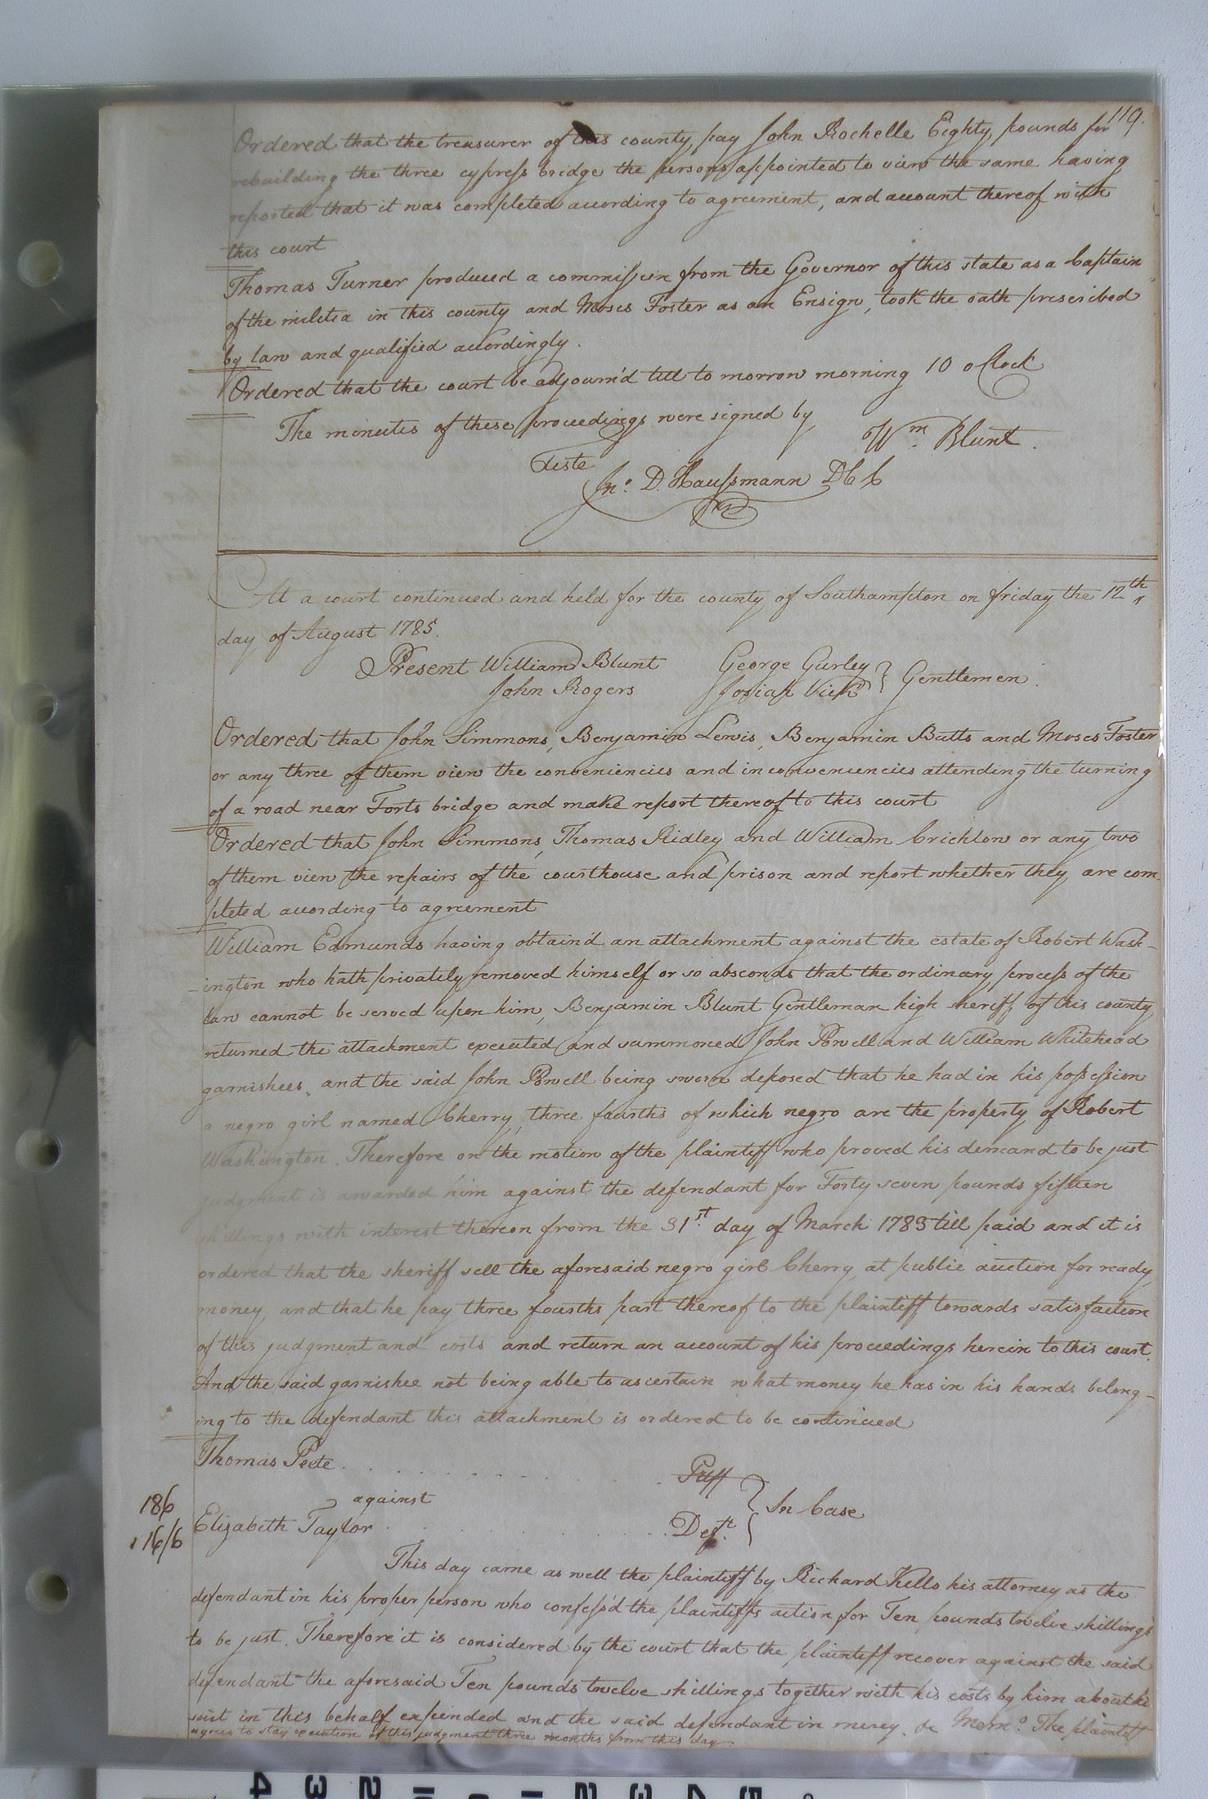 119.
Ordered that the treasurer of this county pay John Rochelle Eighty pounds for
rebuilding the three cypress bridge the persons appointed to view the same having
reported that it was completed according to agreement, and account thereof with
this court
Thomas Turner produced a commission from the Governor of this state as a Captain
of the militia in this county and Moses Foster as an Ensign, took the oath prescribed
by law and qualified accordingly.
Ordered that the court be adjourn'd till to morrow morning 10 oClock
The minutes of these proceedings were signed by
Wm Blunt.
Teste
Jno. D. Haussmann DCC
At a court continued and held for the county of Southampton on friday the 12th
day of August 1785.
Present William Blunt George Gurley } Gentlemen.
John Rogers Josiah Vick
Ordered that John Simmons, Benjamin Lewis, Benjamin Butts and Moses Foster
or any three of them view the conveniencies and inconveniencies attending the turning
of a road near Forts bridge and make report thereof to this court
Ordered that John Simmons, Thomas Ridley and William Crichlow or any two
of them view the repairs of the courthouse and prison and report whether they are com-
pleted according to agreement
William Edmunds having obtain'd an attachment against the estate of Robert Wash-
-ington who hath privately removed himself or so absconds that the ordinary process of the
law cannot be served upon him, Benjamin Blunt Gentleman high sheriff of this county
returned the attachment executed and summoned John Powell and William Whitehead
garnishees, and the said John Powell being sworn deposed that he had in his possession
a negro girl named Cherry, three fourths of which negro are the property of Robert
Washington. Therefore on the motion of the plaintiff who proved his demand to be just
judgment is awarded him against the defendant for Forty seven pounds fifteen
shillings with interest thereon from the 31st. day of March 1783 till paid and it is
ordered that the sheriff sell the aforesaid negro girl Cherry at public auction for ready
money and that he pay three fourths part thereof to the plaintiff towards satisfaction
of this judgment and costs and return an account of his proceedings herein to this court.
And the said garnishee not being able to ascertain what money he has in his hands belong-
ing to the defendant this attachment is ordered to be continued
Thomas Pete . . . . . . . . . Plff
against } In Case
186
116/6
Elizabeth Taylor . . . . . . . . . Deft.
This day came as well the plaintiff by Richard Kello his attorney as the
defendant in his proper person who confess'd the plaintiffs action for Ten pounds twelve shillings
to be just. Therefore it is considered by the court that the plaintiff recover against the said
defendant the aforesaid Ten pounds twelve shillings together with his costs by him about his
suit in this behalf expended and the said defendant in mercy. &c Memo. The plaintiff
agrees to stay execution of this judgment three months from this day
4 3 2 1 0 1 2 3 4 5